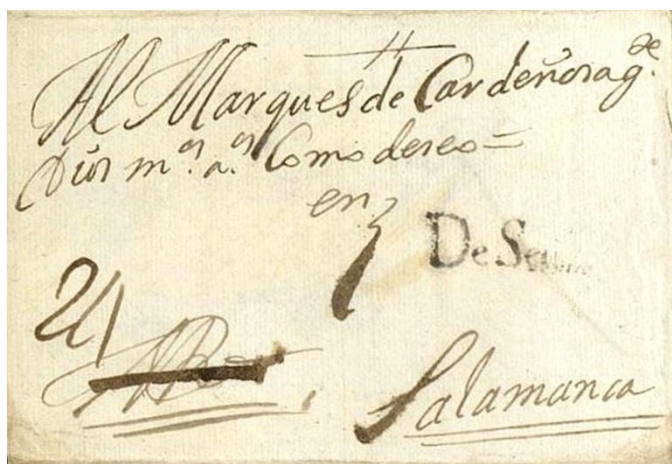 Al Marques de Cardeñosa g.de
Dios m.s a.s Como deseo =
en
De Se
Salamanca